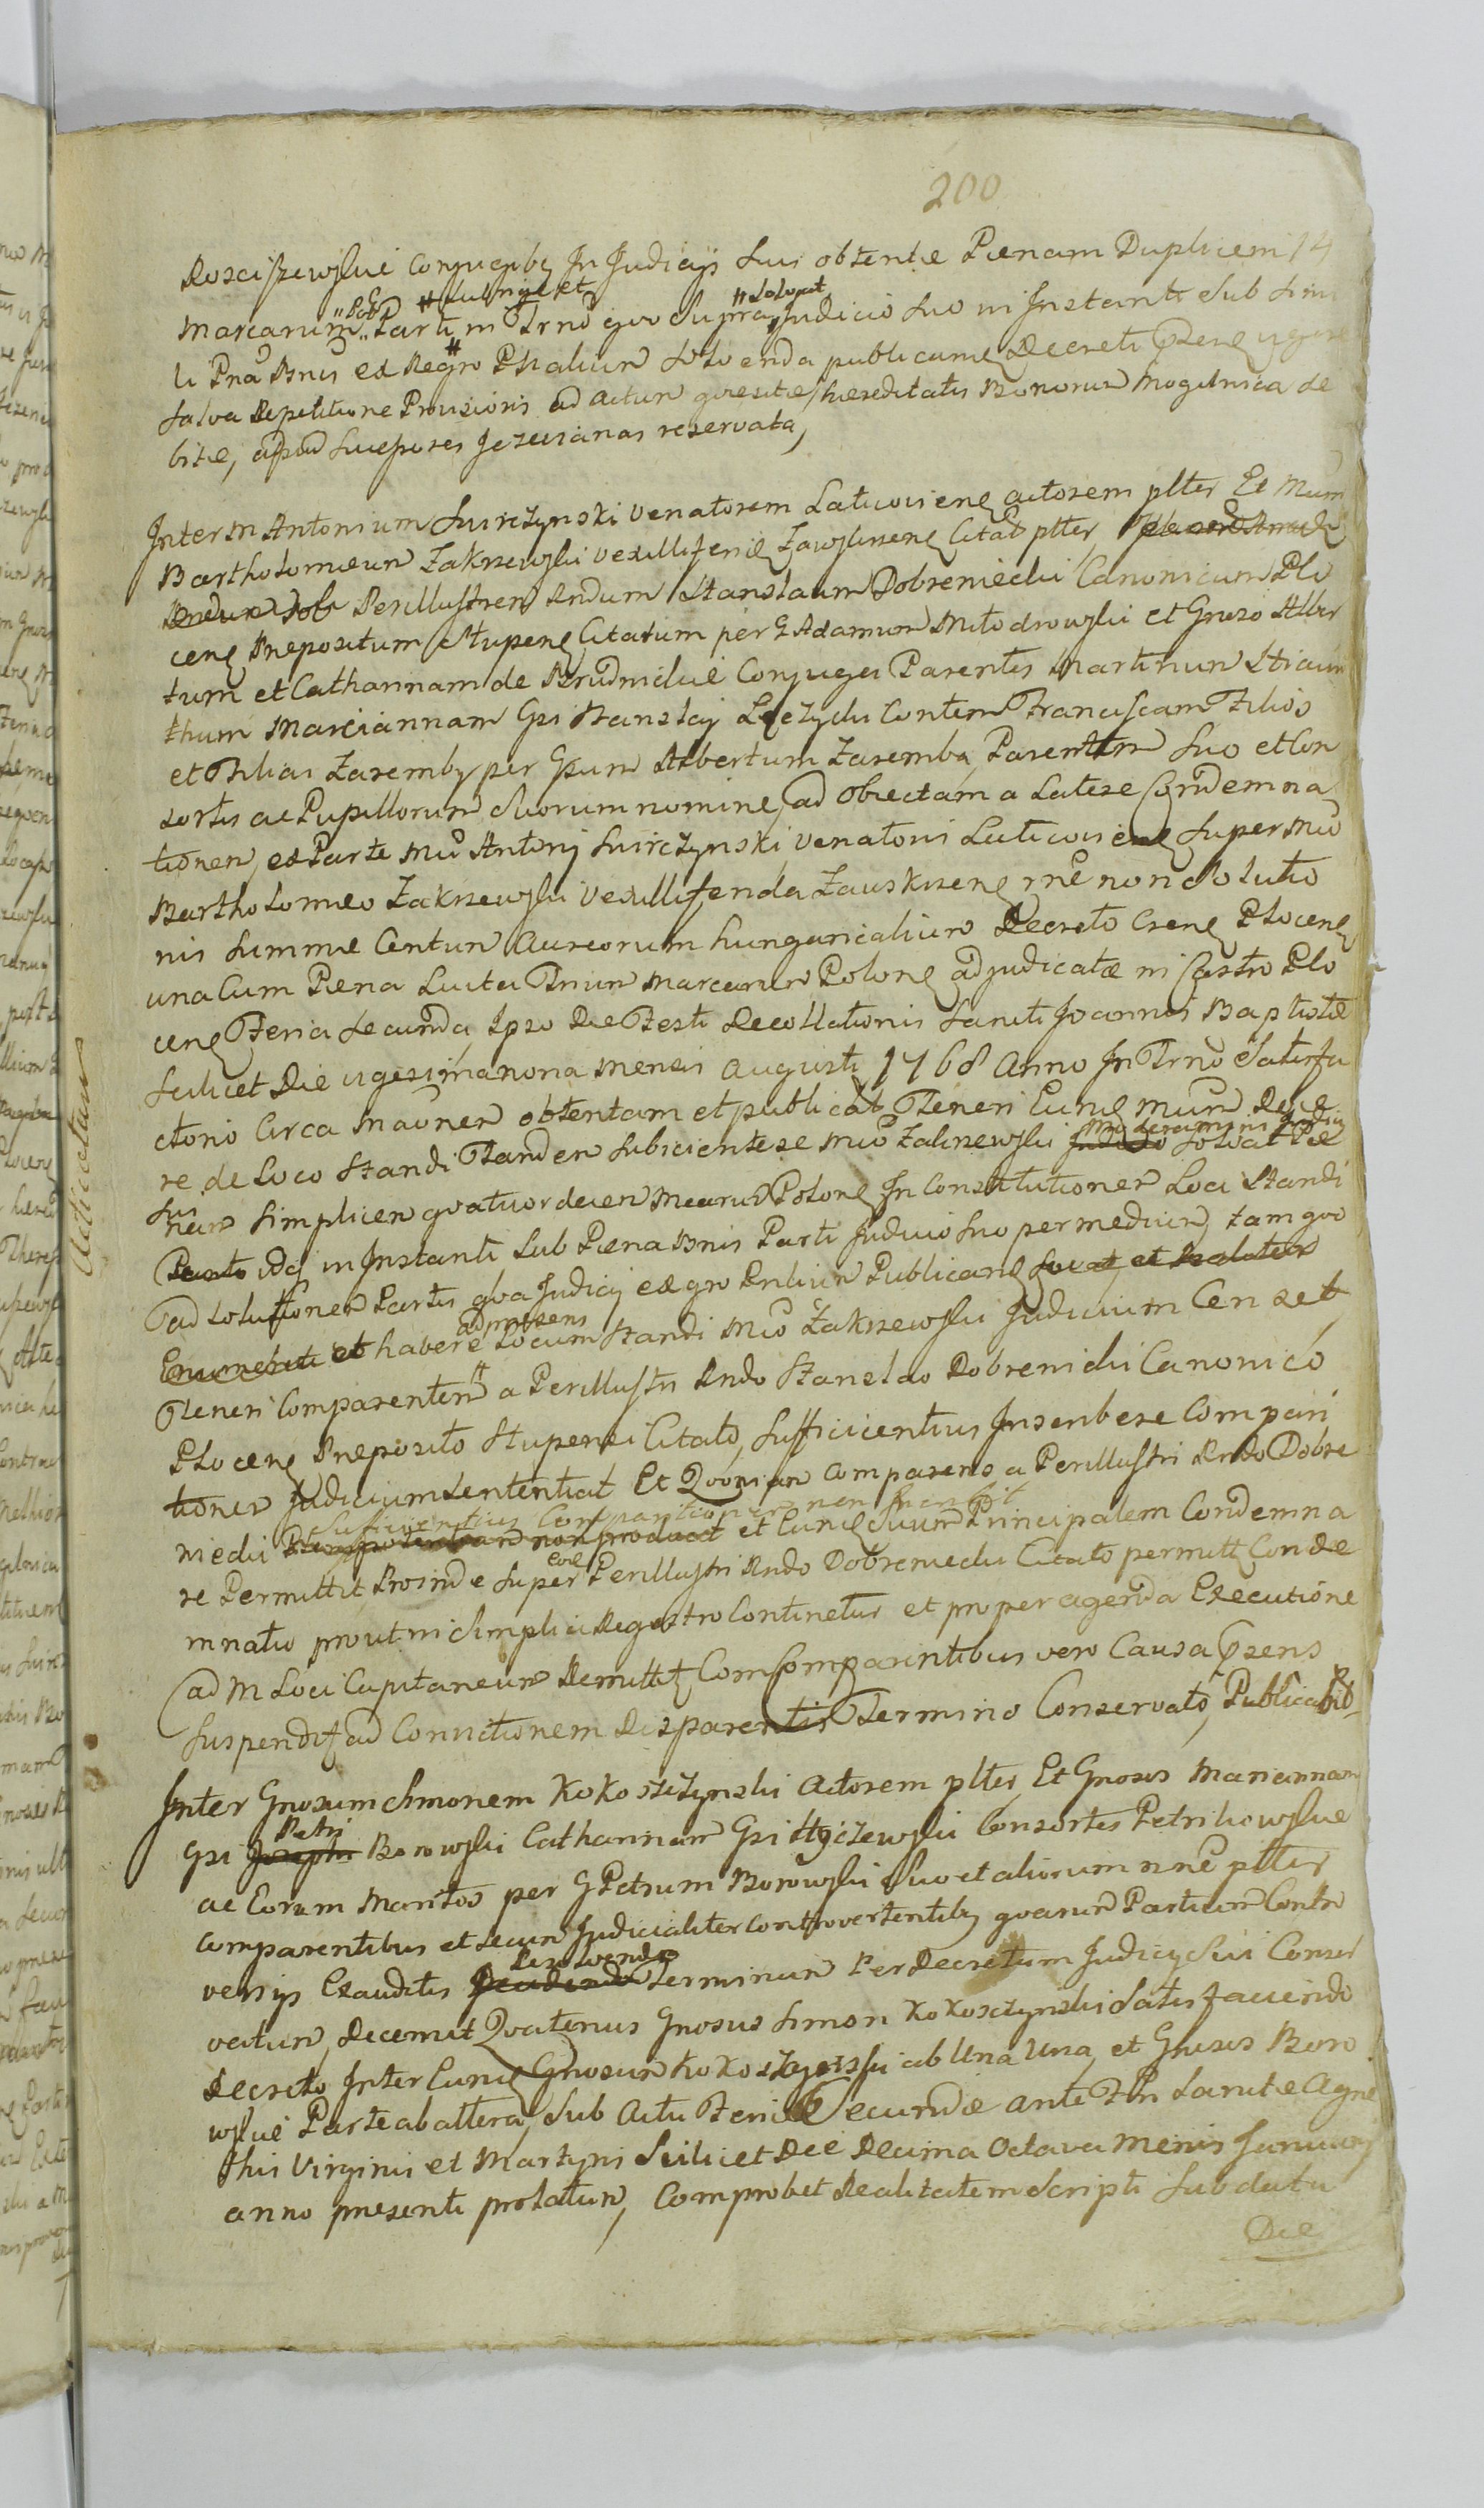 200
Rosciszewskie Conjugibq In Judicijs suis obtentæ Pænam Duplicem 14
Marcarum Parti in Trno quo supra # solvat Judicio suo in Instanti sub simi
li Pna Bnis ex Regro Pnalium solvenda publicumq Decreti
salva Repetitione Provisionis ad actum quæsitæ hæreditatis Bonorum Mogilnica de
bitæ, apud reservata,
Inter M Antonium Swirczynski Venatorem Latiovienq actorem plter Et Mum
Bartholomæum Zakrzewski Vexilliferū Zawskrzenq Citat plter,
Perillustrem Rndum Stanslaum Dobreniecki Canonicum Plo
cenq Præpositum Stupenq Citatum per G Adamum Młodrowski et Gnoso Alber
tum et Catharinam de Conjuges Parentes Martinum Hiacin
thum Mariannam Gsi Stanslaj Contem Franciscam Filios
et Filias Zaremby per Gsum Albertum Zaremba Parentem suo et Con
sortis ac Pupillorum suorum nomine, ad obiectam a Latere Condemna
tionem, ex Parte Mu Antonij Swirczynski Venatoris Laticovienq super Muo
Bartholomæo Zakrzewski Vexillifero Zauskrzenq rne non soluto
nis summæ Centum Aureorum hungaricalium Decreto Csenq Plocenq
una Cum Pæna Luita Trium Marcarum Polonq adjudicatæ in Castro Plo
cenq Feria secunda Ipso Die Festi Decollationis Sancti Joannis Baptistæ
scilicet Die vigesima nona mensis Augusti 1768 Anno In Trno satisfa
ctorio Circa obtentam et publicat. Teneri Eumq Mum Dece
re de Loco Standi Tandem subiciente se Muo Zakrzewski solvat Pæ
nam simplicem quatuordecem Mcarum Polonq In Constitutionem Loci Standi
idq in Instanti sub Pæna Bnis Parti Judicio suo per medium, tam quo
ad solutionem Partis qua Judicij ex gro Pnlium Publicanq
habere admittens Locum Standi Muo Zakrzewski Judicium Censet
Teneri Comparentem a Perillustri Rndo Stanslao Dobreniecki Canonico
Plocenq Præposito Stupensi Citato, sufficientius Inscribere Compari
tionem Judicium sententiat Et Quoniam Comparens a Perillustri Rndo Dobre
niecki sufficientius Comparitionem non et Eumq suum Principalem Condemna
re Permittit, Proinde super Perillustri Rndo Dobreniecki Citato permitt Conde
mnatio prout in simplici Regestro Continetur et pro peragenda Executione
ad M Loci Capitaneum Remittit, Comparintibus vero Causa
suspendit ad Convictionem Disparentis Termino Conservato, Publicabit
Inter Gnosum Simonem Kokoszczynski Actorem plter Et Gnosos Mariannam
Gsi Petri Borowski Catharinam Gsi Consortes Petrikowskie
ac Eorum Maritos per G Petrum Borowski suo et aliorum nne plter
Comparentibus et secum Judicialiter Controvertentibq quarum Partium Contro
versijs Exauditis Terminum Per Decretum Judicij sui Conser
vatum, Decernit Quatenus Gnosus Simon Kokoszczynski satis faciendo
Decreto Inter Eumq Gnosum ab Una Una, et Gnosos Boro
wskie Parte ab altera, sub Actu Feriæ secundæ ante Fm Sanctæ Agne
this Virginis et Martyris scilicet Die Decima Octava Mensis Januarij
anno præsenti prolatum, Comprobet Realitatem scripti sub datu
Die